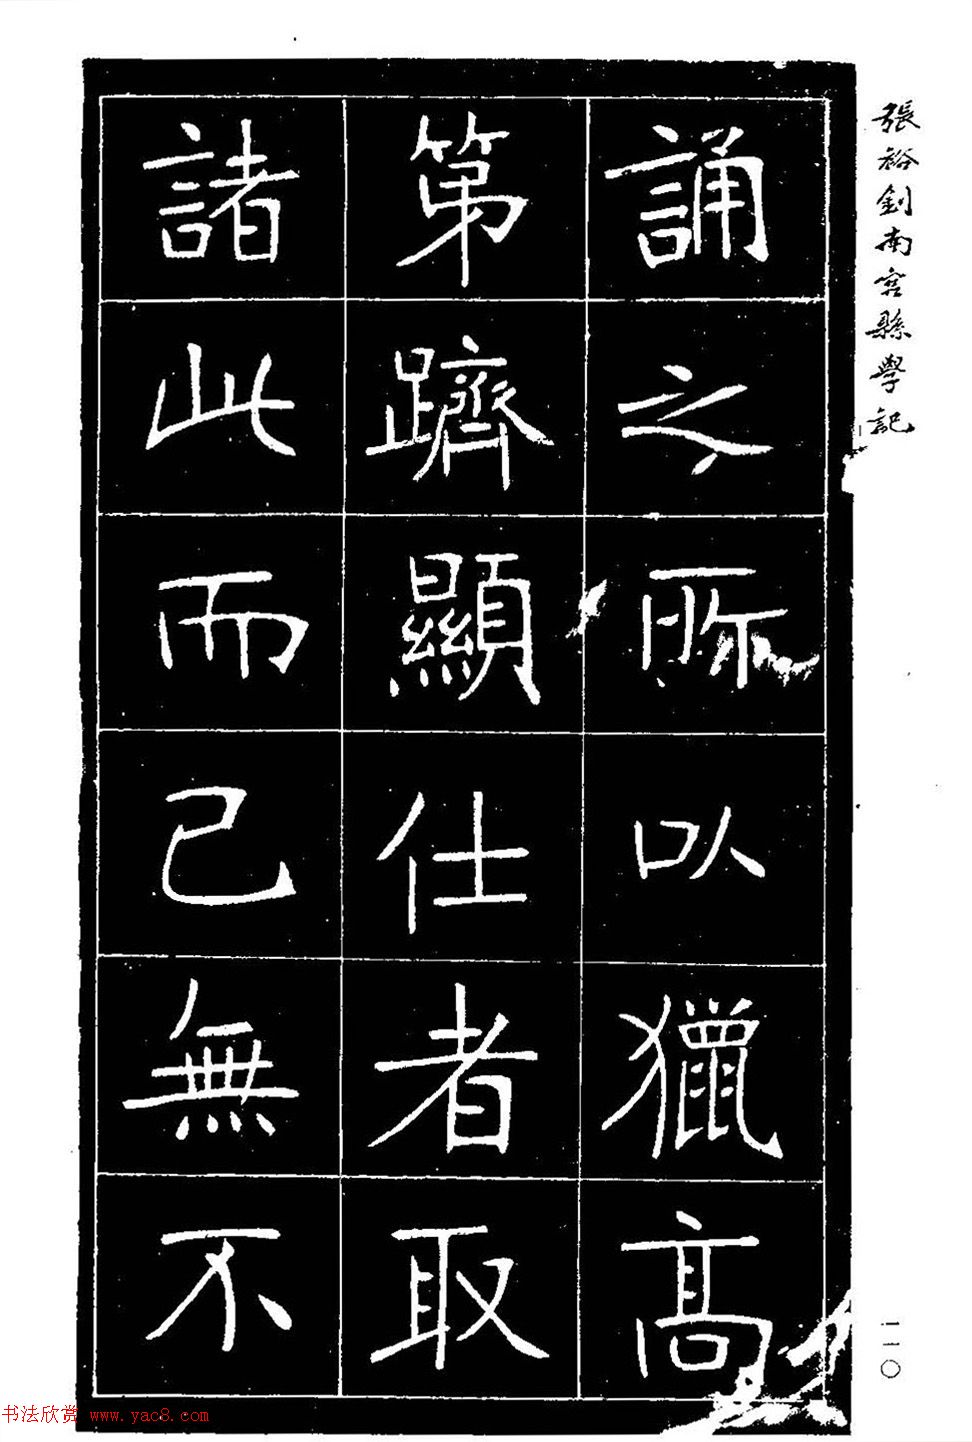 張裕釗南宮縣學記
誦之所以獵高
第躋顯仕者取
諸此而已無不
一一〇
书法欣赏 www.yac8.com